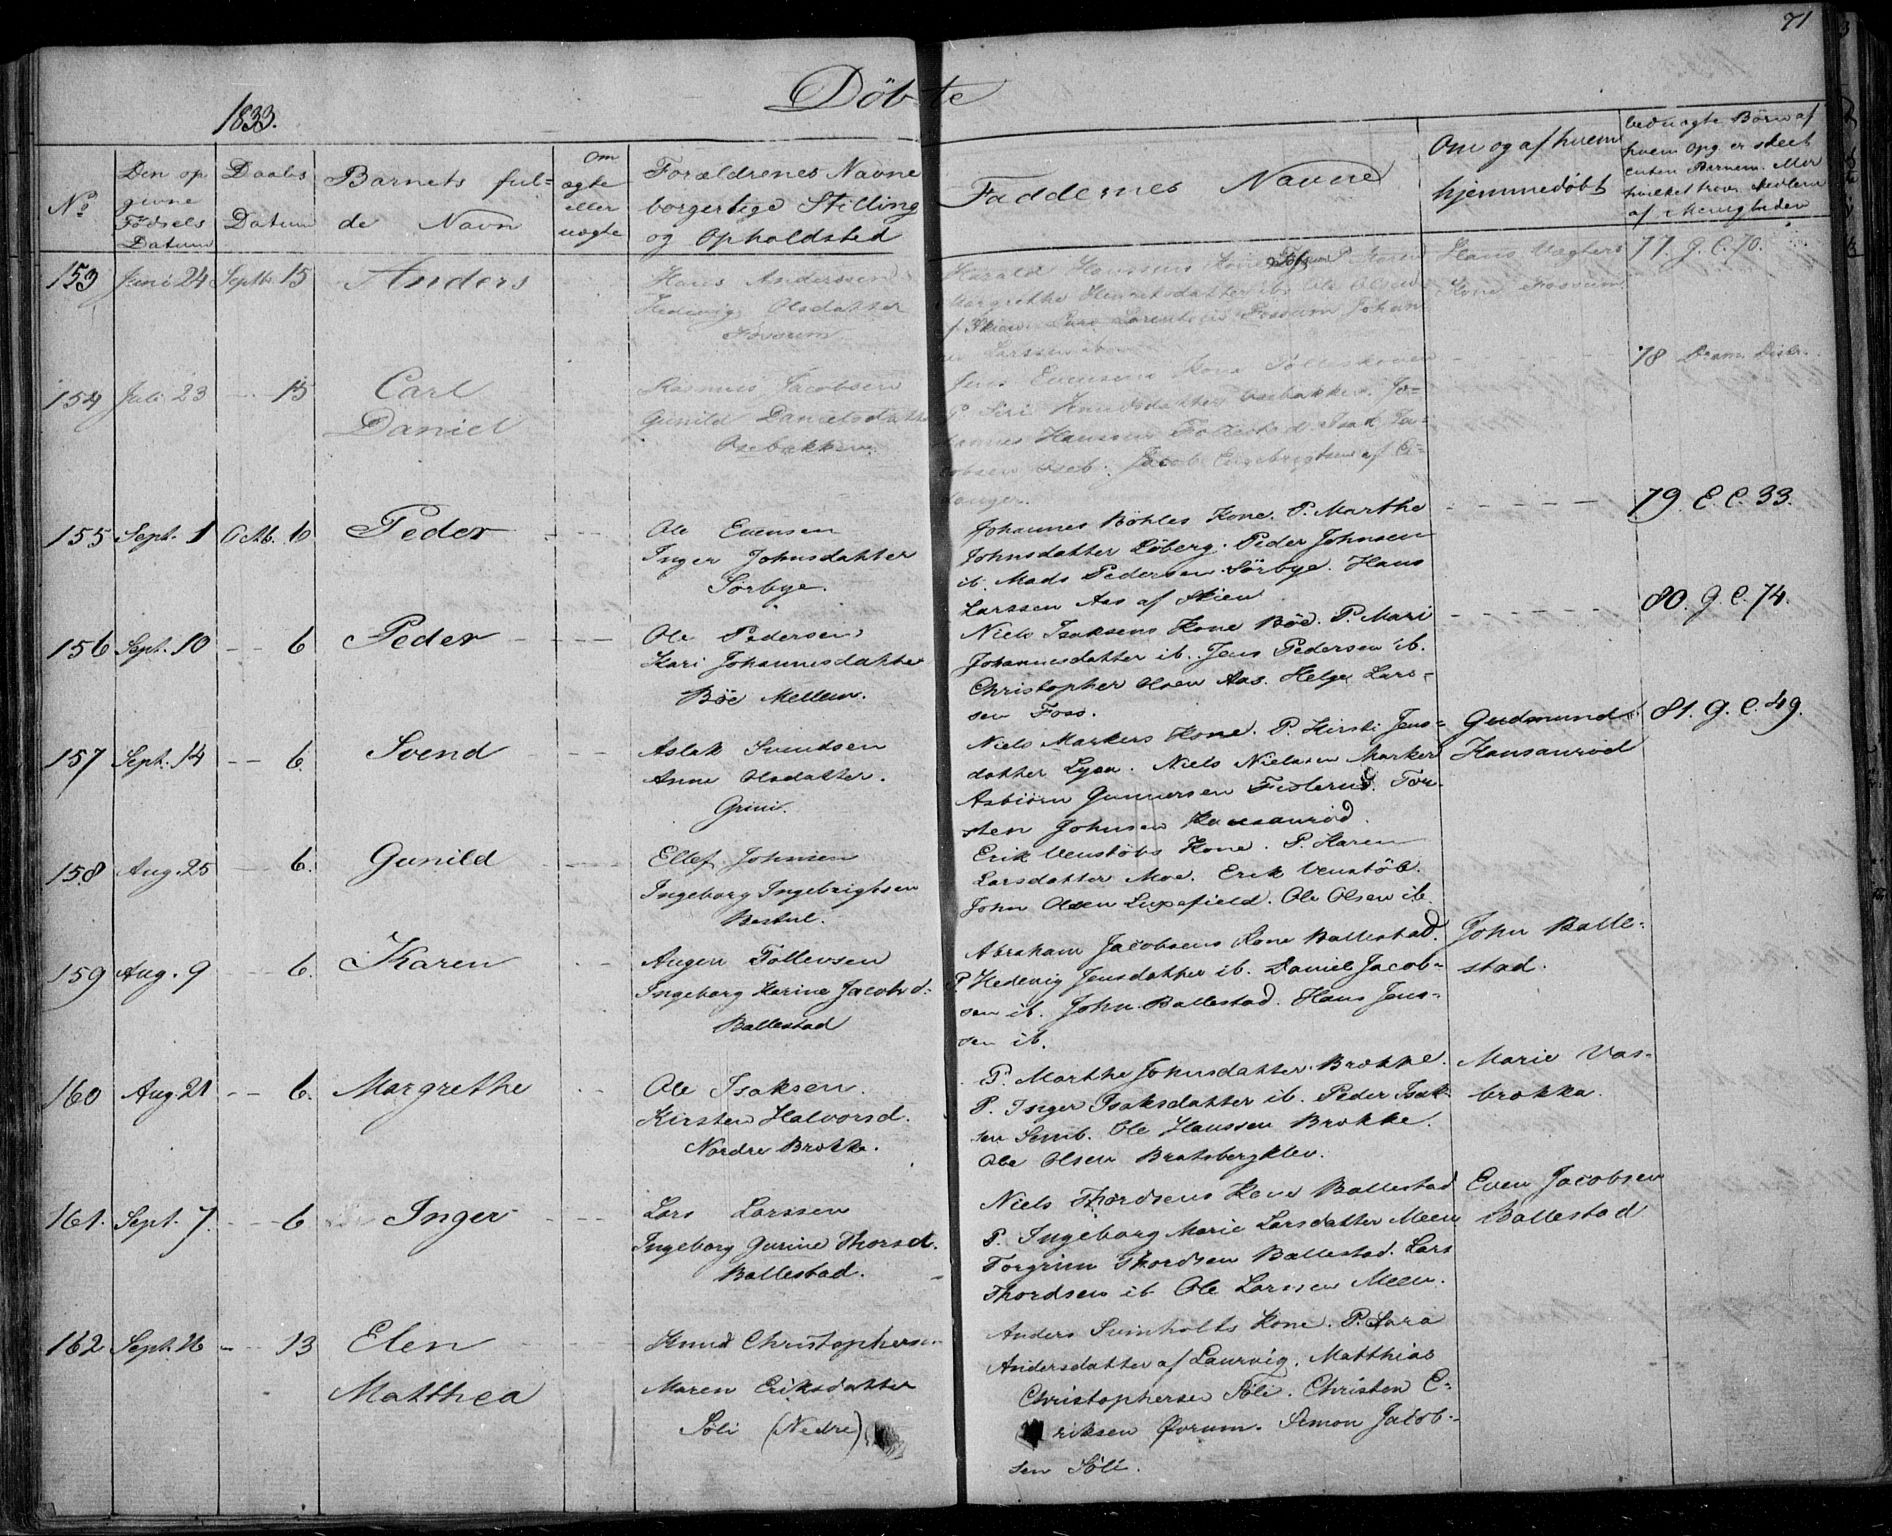 71
Döbte
1833.
No
Den op
givne
Födsels
Datum
Daabs
Datum
Barnets ful-
de Navn
Om
ægte
eller
uægte
Forældrenes Navne
borgerlige Stilling
og Opholdsted
Faddernes Navne
Om og af hvem
hjemmedöbt
hvem opg. er skeet
af Menigheden
153 Juni 24 Septb. 15 Anders
Hans Anderssen
Hedevig Olsdatter
Fossum
Harald Hanssens Kone
Margrethe
Larssen ib.
Hans Vægters
Kone Fossum
77. g. C. 70.
154 Juli 23 - 15 Carl
Daniel
Rasmus Jacobsen
Gunild Danielsdatter
Osebakken
Jens Evensens Kone
P. Siri Knudsdatter Osebakken. Jo-
hannes Hanssen Isak Ja-
cobsen Oseb. Jacob Engebregtsen af Ei-
danger.
78 Dram. Distr.
155 Sept. 1 Octb. 6 Peder
Ole Evensen
Inger Johnsdatter
Sörbye.
Johannes Böhles Kone. P. Marthe
Johnsdatter Löberg. Peder Johnsen
ib. Mads Pedersen Sörbye. Hans
Larssen Aas af Skien
79. E. C. 33.
156 Sept. 10 - 6 Peder
Ole Pedersen
Kari Johannesdatter
Böe Mellem.
Niels Isaksens Kone Böe. P. Mari
Johannesdatter ib. Jens Pedersen ib.
Christopher Olsen Aas. Helge Lars-
sen Foss.
80. g. C. 74.
157 Sept. 14 - 6. Svend
Aslak Svendsen
Anne Olsdatter.
Grini.
Niels Markers Kone. P. Kirsti Jens-
datter Lysa. Niels Nielssen Marker
Asbiörn Gunnersen Fislerud. Tor-
sten Johnsen Hansanröd.
Gudmund
Hansanröd
81. g. C. 49.
158 Aug. 25 - 6. Gunild
Ellef Johnsen
Ingeborg Ingebrightsen
Bestul.
Erik Venstöbs Kone. P. Karen
Larsdatter Moe. Erik Venstöb.
John Olsen Luxefield. Ole Olsen ib.
159 Aug. 9 - 6. Karen
Augen Töllevsen
Ingeborg Karine Jacobsd:
Ballestad
Abraham Jacobsens Kone Ballestad.
P. Hedevig Jensdatter ib. Daniel Jacob-
sen ib. John Ballestad. Hans Jens-
sen ib.
John Balle-
stad.
160 Aug 21 - 6. Margrethe
Ole Isaksen.
Kirsten Halvorsd.
Nordre Brokke.
P. Marthe Johnsdatter Brokke.
P. Inger Isaksdatter ib. Peder Isak-
sen Semb. Ole Hanssen Brokke.
Ole Olsen Bratsbergklev.
Marie Vas-
brokka.
161. Sept. 7. - 6 Inger
Lars Larssen
Ingeborg Gurine Thorsd.
Ballestad.
Niels Thordsens Kone Ballestad
P. Ingeborg Marie Larsdatter Meen
Torgrim Thordsen Ballestad. Lars
Thordsen ib. Ole Larssen Meen.
Even Jacobsen
Ballestad
162 Sept. 16 - 13 Elen
Matthea
Knud Christophersen
Maren Eriksdatter
Söli (Nedre)
Anders Svinholts Kone. P. Sara
Andersdatter af Laurvig. Matthias
Christophersen Söli. Christen E-
riksen Gorum. Simon Jacob-
sen Söli.